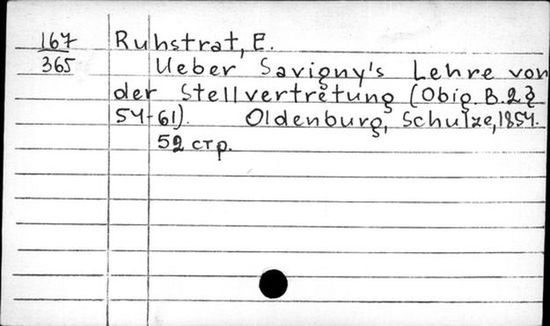 167 Ruhstrat, E.
365 Ueber Savigny's Lehre von
der Stellvertretung (Obig. B. 2 §
54-61). Oldenburg, Schulze, 1854.
52 стр.